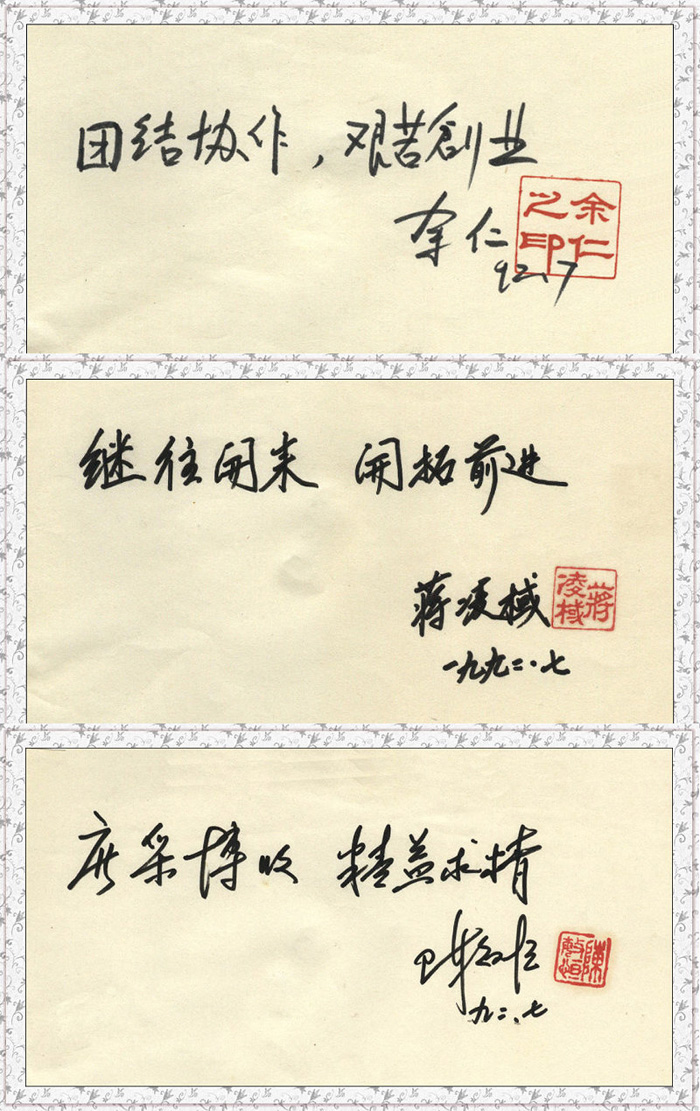 团结协作，艰苦創业
余仁
余仁之印
92.7
继往开来 开拓前进
蒋凌棫
蔣凌棫
一九九二.七
广采博收 精益求精
陈敏恒
陳敏恒
九二.七